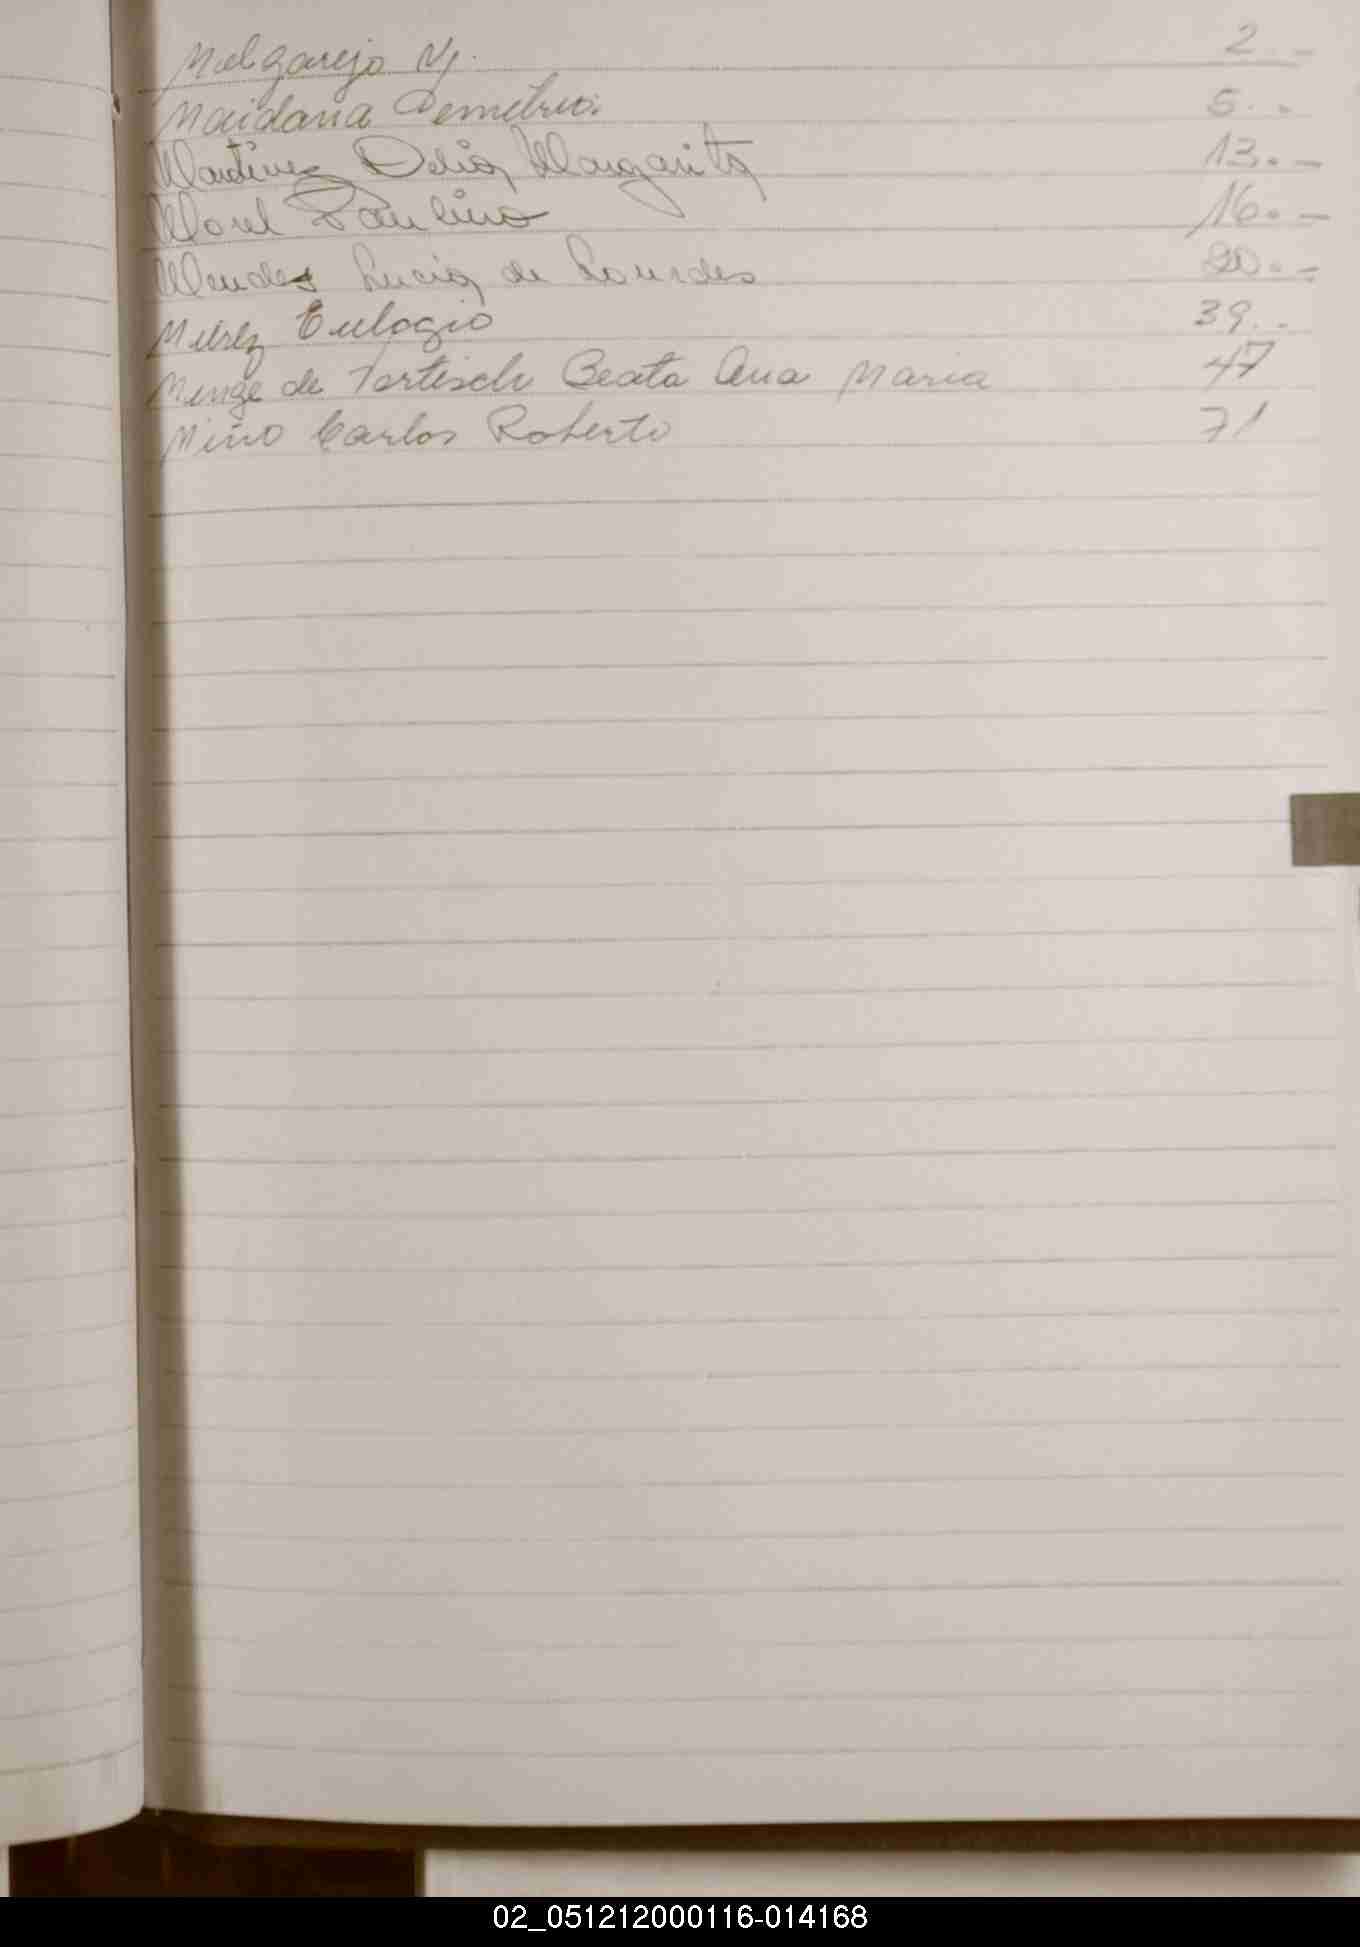 Melgarejo N. 2 . -
Maidana Demetrio. 5 . .
Martinez Delia Margarita 13. -
Morel Paulino 16. -
Mendes Lucia de Lourdes 20. -
Eulogio 39 . .
Menge de Tortisch Beata Ana Maria 47
Miño Carlos Roberto 71
02_051212000116-014168